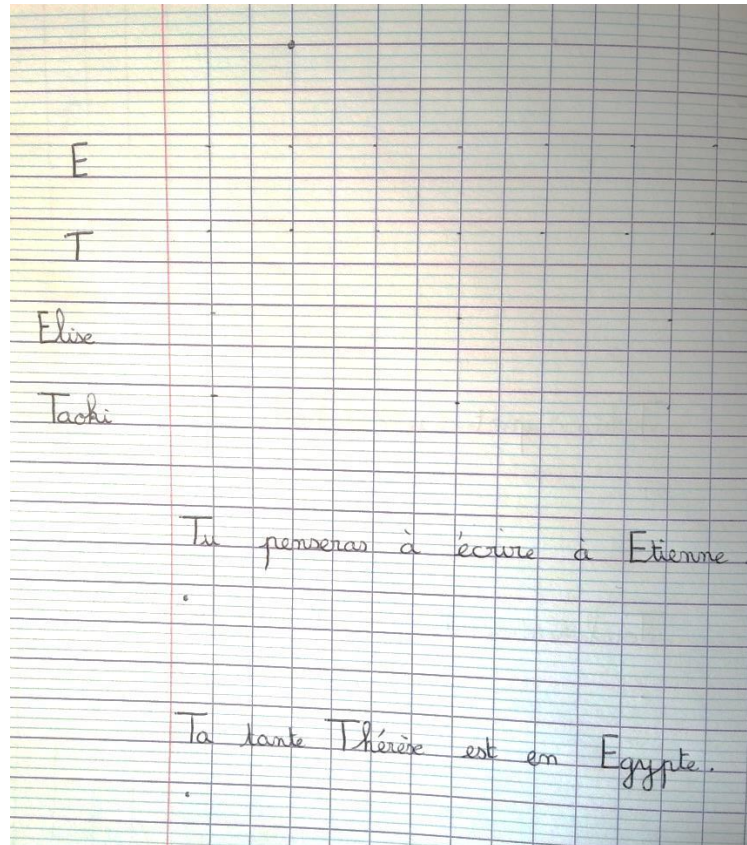 E
T
Elise
Taoki
Tu penseras à écrire à Etienne.
Ta tante Thérèse est en Egypte.